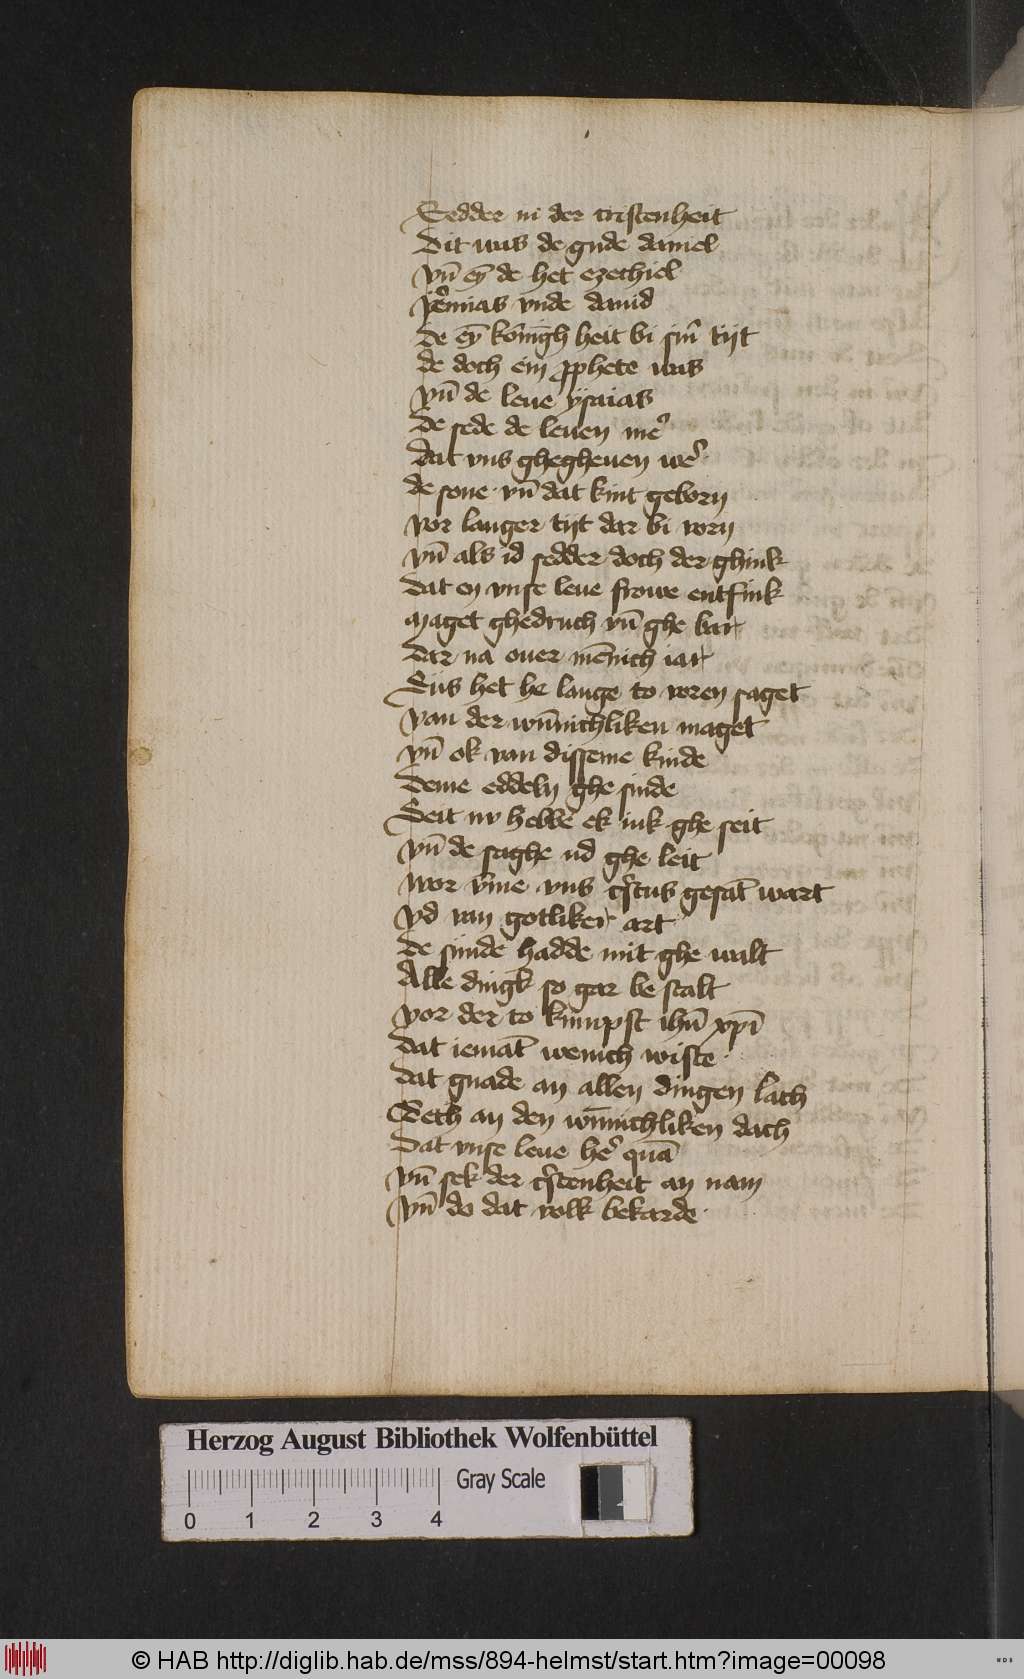 Sedder in der cristenheit
Dit was de gude daniel
vn̄ eȳ de het ezechiel
jer̄mias vnde dauid
de eȳ kōnigh heit bi sin̄ tijt
de doch ein ꝓphete was
vn̄ de leue ysaias
De sede de leuen me᷑
dat vns ghegheuen we᷑
de sone vn̄ dat kint geborn
vor langer tijt dar bi vorn
vn̄ als id sedder doch der ghink
Dat en vnse leue frowe entfink
Maget ghedruch vn̄ ghe bar
Dar na ouer mēnich iar
Sus het he lange to voren saget
van der wūnichliken maget
vn̄ ok van disseme kinde
Deme eddeln ghe sinde
Seit nv hebbē ek iuk ghe seit
vn̄ de saghe ud ghe leit
wor v̄me vns cr̄stus gesāt wart
vd van gotliker art
de sunde hadde mit ghe walt
Alle dingk so gar be stalt
vor der to kumpst ihū xpī
dat iemāt wenich wiste
dat gnade an allen dingen lach
Seth an den wūnichliken dach
Dat vnse leue he᷑ quā
vn̄ sek der cr̄stenheit an nam
vn̄ do dat volk bekarde
Herzog August Bibliothek Wolfenbüttel
Gray Scale
0 1 2 3 4
© HAB http://diglib.hab.de/mss/894-helmst/start.htm?image=00098